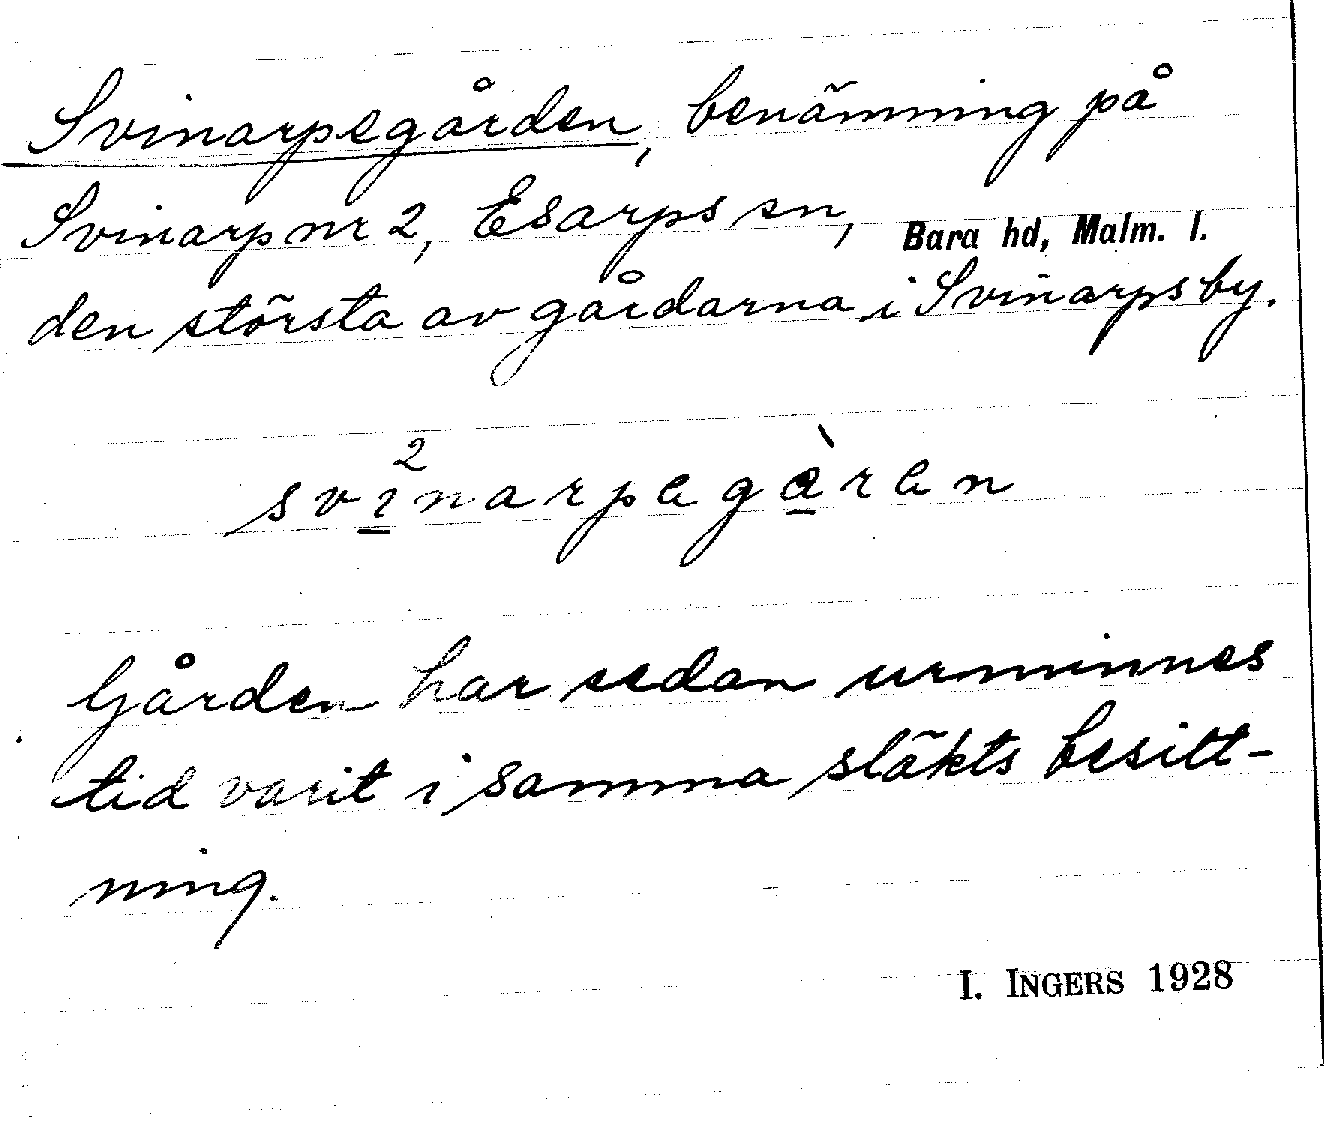 Svinarpegården, benämning på
Svinarp nr 2, Esarps sn, Bara hd, Malm. l.
den största av gårdarna i Svinarps by.
svi²narpegàren
Gården har sedan urminnes
tid varit i samma släkts besitt-
ning.
I. INGERS 1928